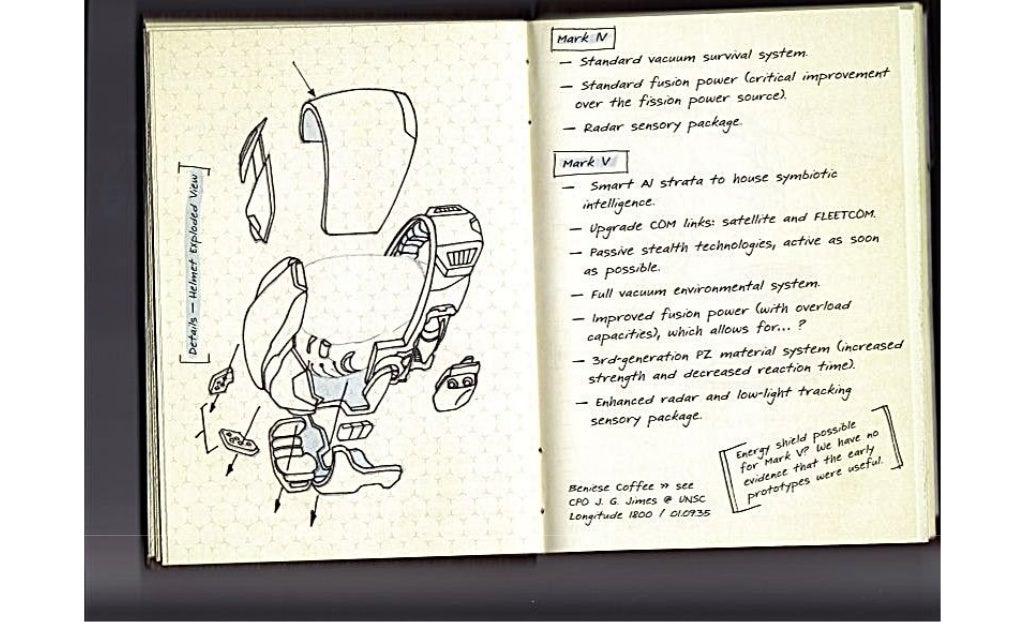 Details — Helmet Exploded View
Mark IV
— Standard vacuum survival system.
— Standard fusion power (critical improvement
over the fission power source).
— Radar sensory package.
Mark V
— Smart AI strata to house symbiotic
intelligence.
— Upgrade COM links: satellite and FLEETCOM.
— Passive stealth technologies, active as soon
as possible.
— Full vacuum environmental system.
— Improved fusion power (with overload
capacities), which allows for... ?
— 3rd-generation PZ material system (increased
strength and decreased reaction time).
— Enhanced radar and low-light tracking
sensory package.
Energy shield possible
for Mark V? We have no
evidence that the early
prototypes were useful.
Beniese Coffee » see
CPO J. G. Jimes @ UNSC
Longitude 1800 / 01.0935